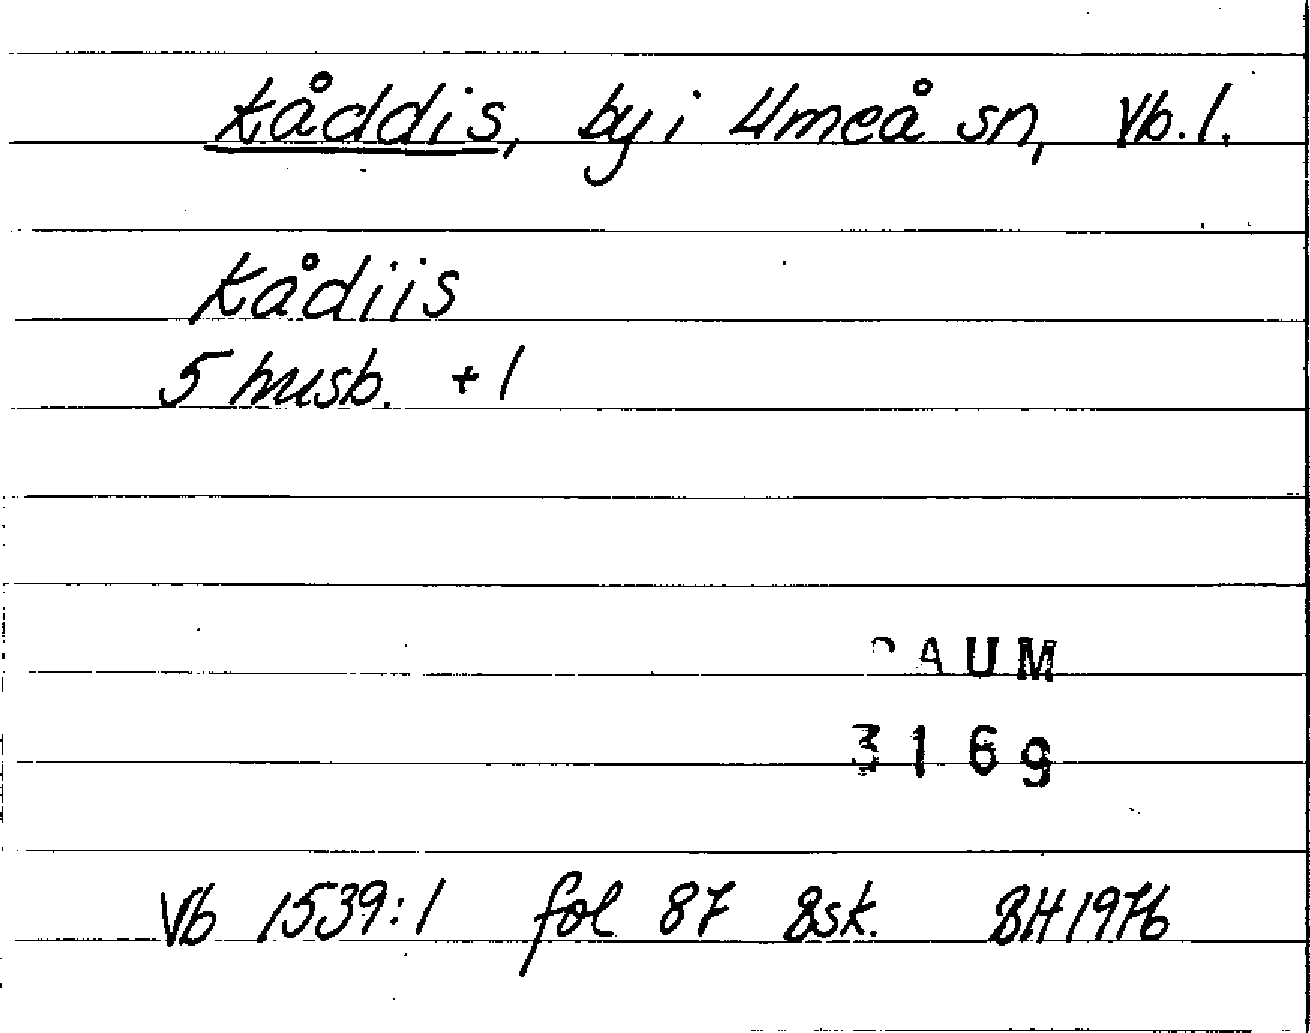 Kåddis, by i Umeå sn, Vb. l.
Kådiis
5 husb. + 1
AUM
3169
Vb 1539:1 fol 87 Bsk. BH 1976